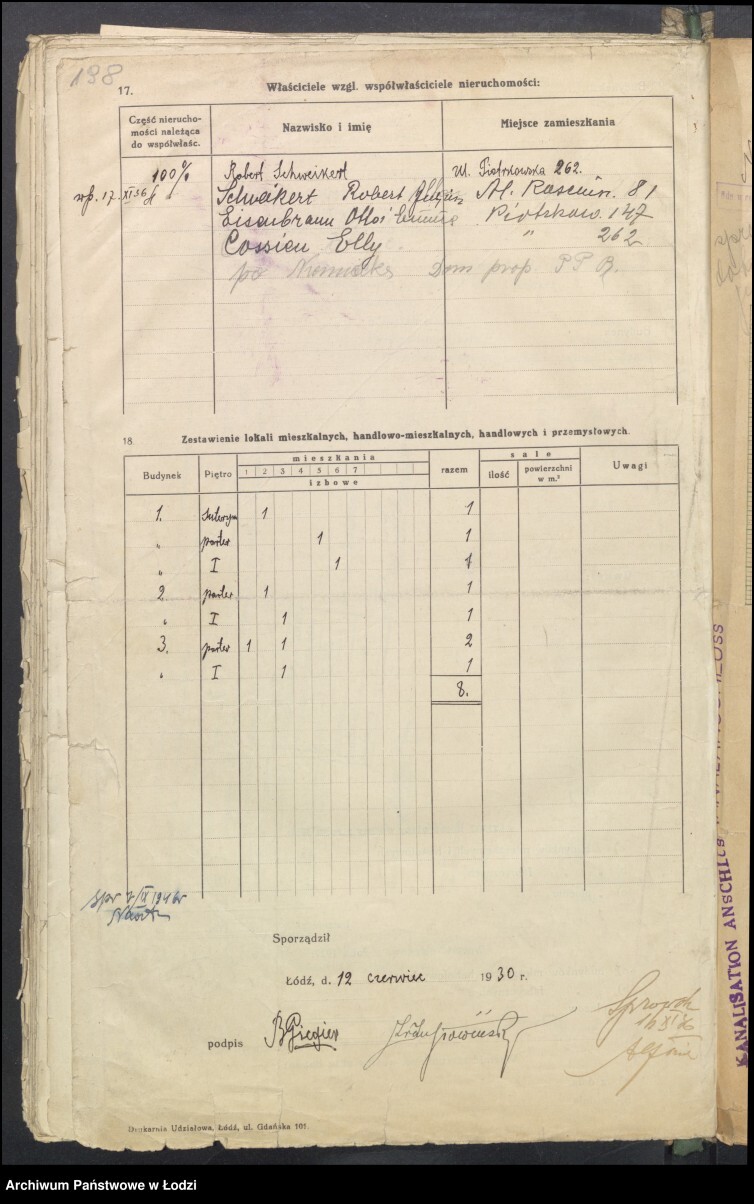 198
17. Właściciele wzgl. współwłaściciele nieruchomości:
Część nierucho-
mości należąca
do współwłaśc.
Nazwisko i imię
Miejsce zamieszkania
100% Robert Schweikert Ul. Piotrkowska 262.
17. XI 36 Schweikert Robert Al. Kosciusz. 81
Eisenbraun Otto i Piotrkow. 147
Cossieu Elly " 262
po Dom prop P P R.
18. Zestawienie lokali mieszkalnych, handlowo-mieszkalnych, handlowych i przemysłowych.
Budynek Piętro mieszkania razem sale Uwagi
1 2 3 4 5 6 7
izbowe
ilość powierzchni w m.²
1. suteryn 1 1
„ parter 1 1
„ I 1 1
2 parter 1 1
„ I 1 1
3. parter 1 1 2
„ I 1 1
8.
spr 7/IX 1946r
Sporządził
Łódź, d. 12 czerwiec 1930 r.
podpis
Drukarnia Udziałowa, Łódź, ul. Gdańska 101.
KANALISATION ANSCHLUSS
Archiwum Państwowe w Łodzi